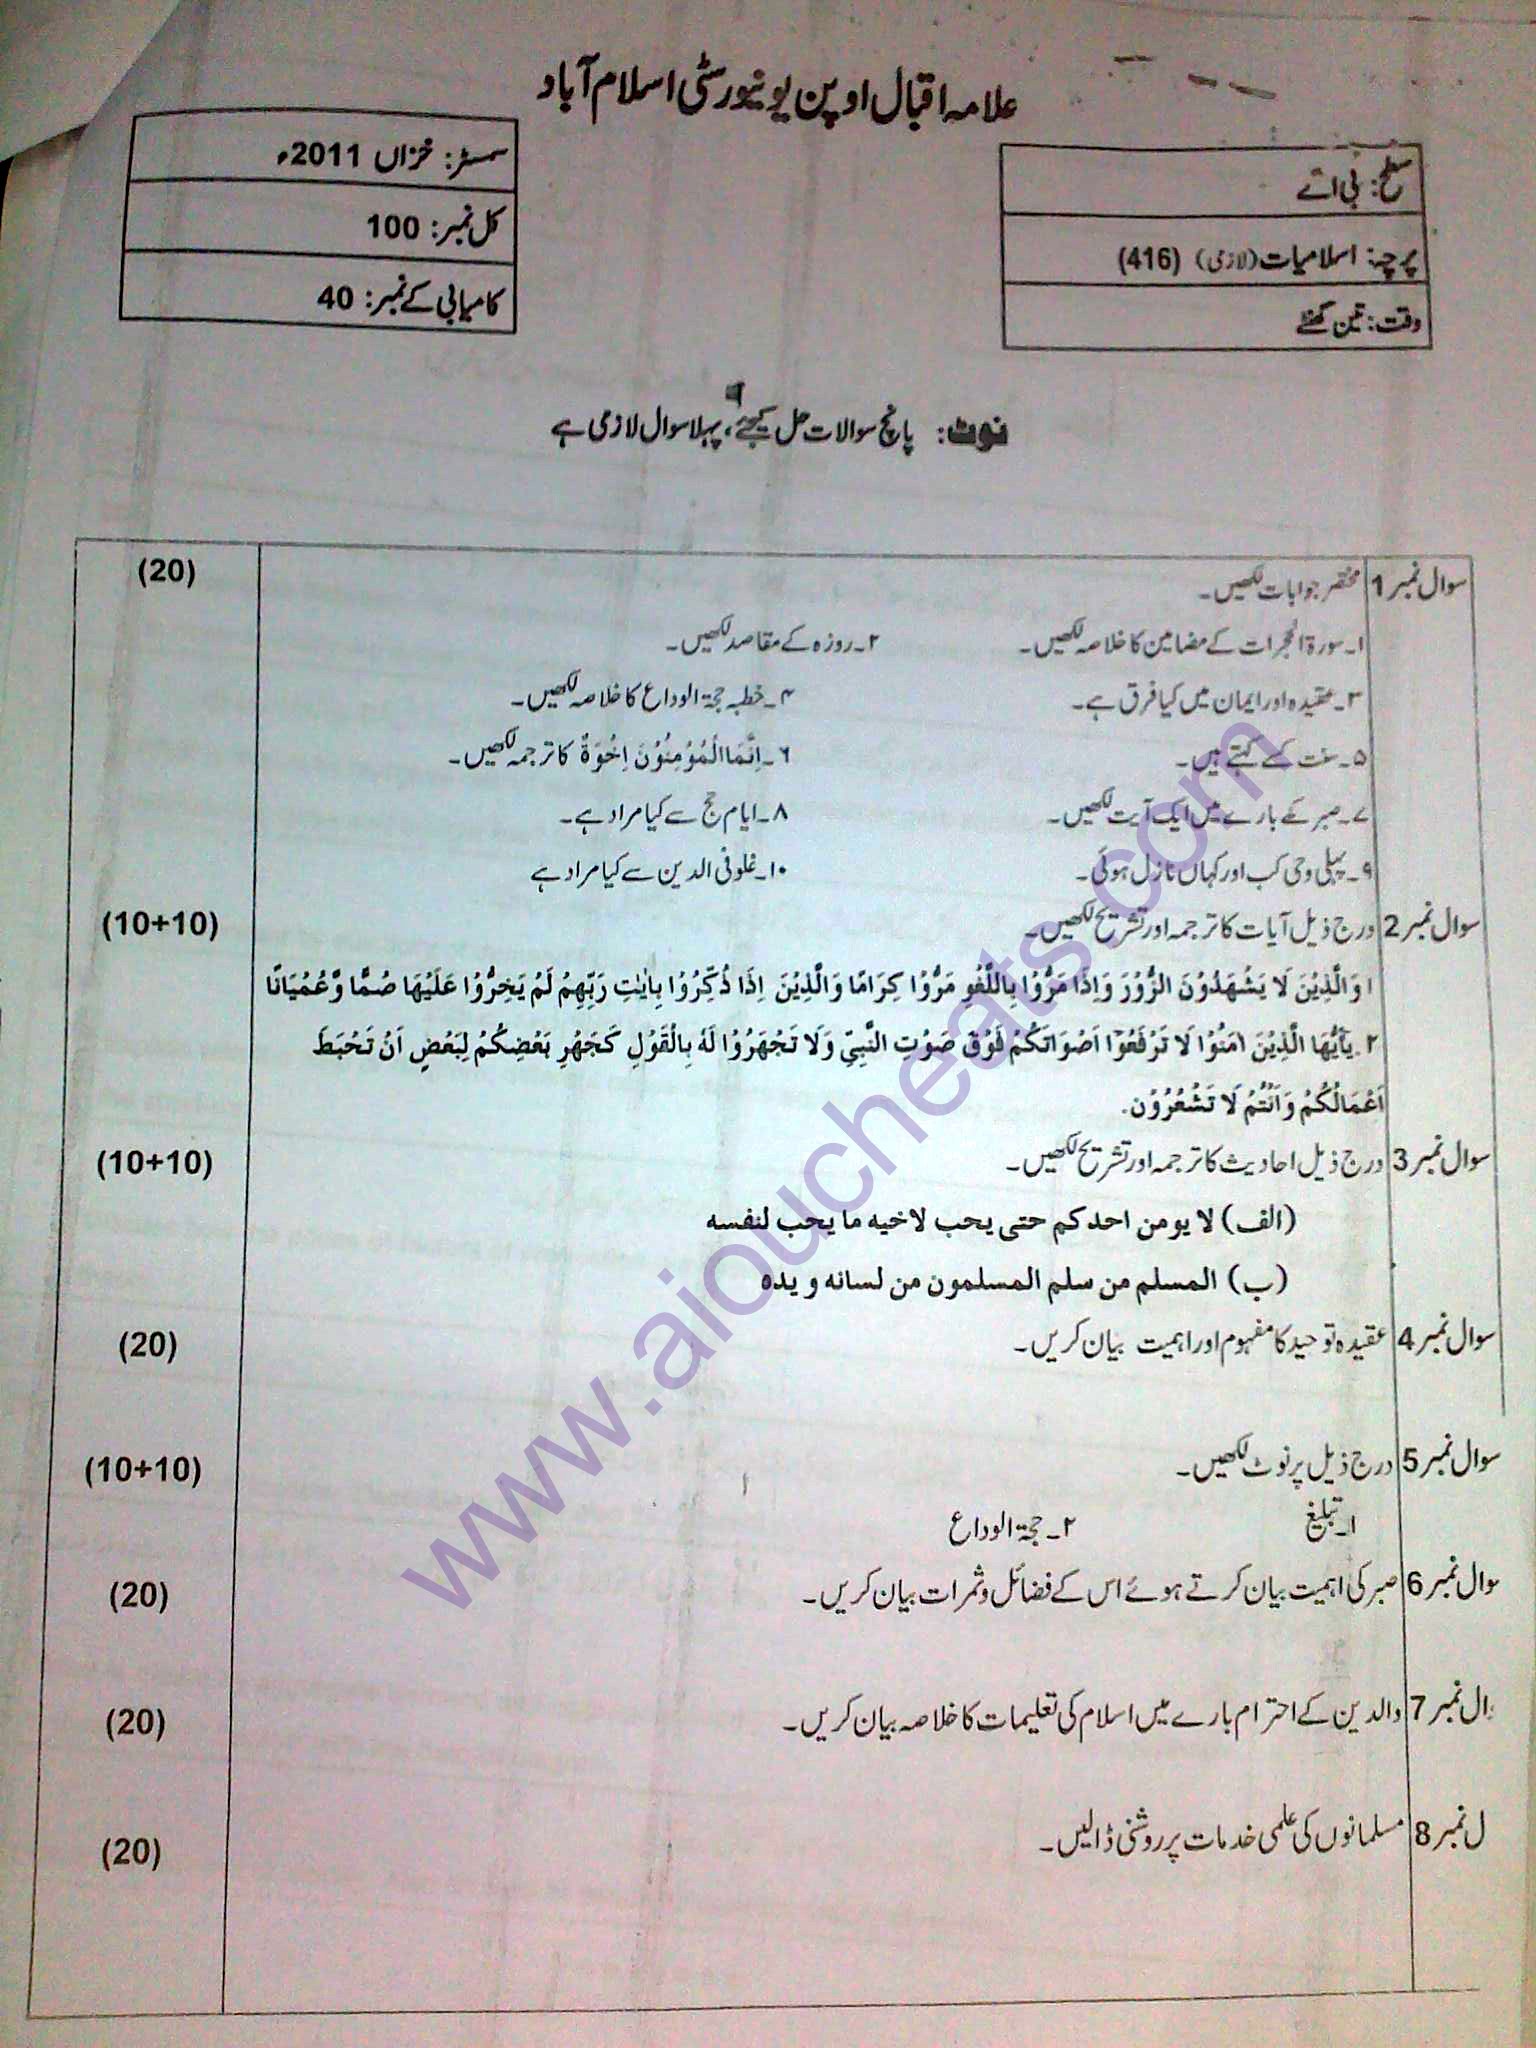 علامہ اقبال اوپن یونیورسٹی اسلام آباد
سطح: بی اے
پرچہ: اسلامیات (لازمی) (416)
وقت: تین گھنٹے
سمسٹر: خزاں 2011ء
کل نمبر: 100
کامیابی کے نمبر: 40
نوٹ: پانچ سوالات حل کیجئے، پہلا سوال لازمی ہے
سوال نمبر 1 مختصر جوابات لکھیں۔ (20)
۱۔ سورۃ الحجرات کے مضامین کا خلاصہ لکھیں۔ ۲۔ روزہ کے مقاصد لکھیں۔
۳۔ عقیدہ اور ایمان میں کیا فرق ہے۔ ۴۔ خطبہ حجۃ الوداع کا خلاصہ لکھیں۔
۵۔ سنت کسے کہتے ہیں۔ ۶۔ اِنَّمَا الْمُؤْمِنُوْنَ اِخْوَةٌ کا ترجمہ لکھیں۔
۷۔ صبر کے بارے میں ایک آیت لکھیں۔ ۸۔ ایام حج سے کیا مراد ہے۔
۹۔ پہلی وحی کب اور کہاں نازل ہوئی۔ ۱۰۔ غلو فی الدین سے کیا مراد ہے
سوال نمبر 2 درج ذیل آیات کا ترجمہ اور تشریح لکھیں۔ (10+10)
۱ وَالَّذِيْنَ لَا يَشْهَدُوْنَ الزُّوْرَ وَاِذَا مَرُّوْا بِاللَّغْوِ مَرُّوْا كِرَامًا وَالَّذِيْنَ اِذَا ذُكِّرُوْا بِاٰيٰتِ رَبِّهِمْ لَمْ يَخِرُّوْا عَلَيْهَا صُمًّا وَّعُمْيَانًا
۲. يٰٓاَيُّهَا الَّذِيْنَ اٰمَنُوْا لَا تَرْفَعُوْٓا اَصْوَاتَكُمْ فَوْقَ صَوْتِ النَّبِيِّ وَلَا تَجْهَرُوْا لَهٗ بِالْقَوْلِ كَجَهْرِ بَعْضِكُمْ لِبَعْضٍ اَنْ تَحْبَطَ
اَعْمَالُكُمْ وَاَنْتُمْ لَا تَشْعُرُوْن.
سوال نمبر 3 درج ذیل احادیث کا ترجمہ اور تشریح لکھیں۔ (10+10)
(الف) لا يومن احدكم حتى يحب لاخيه ما يحب لنفسه
(ب) المسلم من سلم المسلمون من لسانه و يده
سوال نمبر 4 عقیدہ توحید کا مفہوم اور اہمیت بیان کریں۔ (20)
سوال نمبر 5 درج ذیل پر نوٹ لکھیں۔ (10+10)
۱۔ تبلیغ ۲۔ حجۃ الوداع
سوال نمبر 6 صبر کی اہمیت بیان کرتے ہوئے اس کے فضائل و ثمرات بیان کریں۔ (20)
وال نمبر 7 والدین کے احترام بارے میں اسلام کی تعلیمات کا خلاصہ بیان کریں۔ (20)
ل نمبر 8 مسلمانوں کی علمی خدمات پر روشنی ڈالیں۔ (20)
www.aioucheats.com